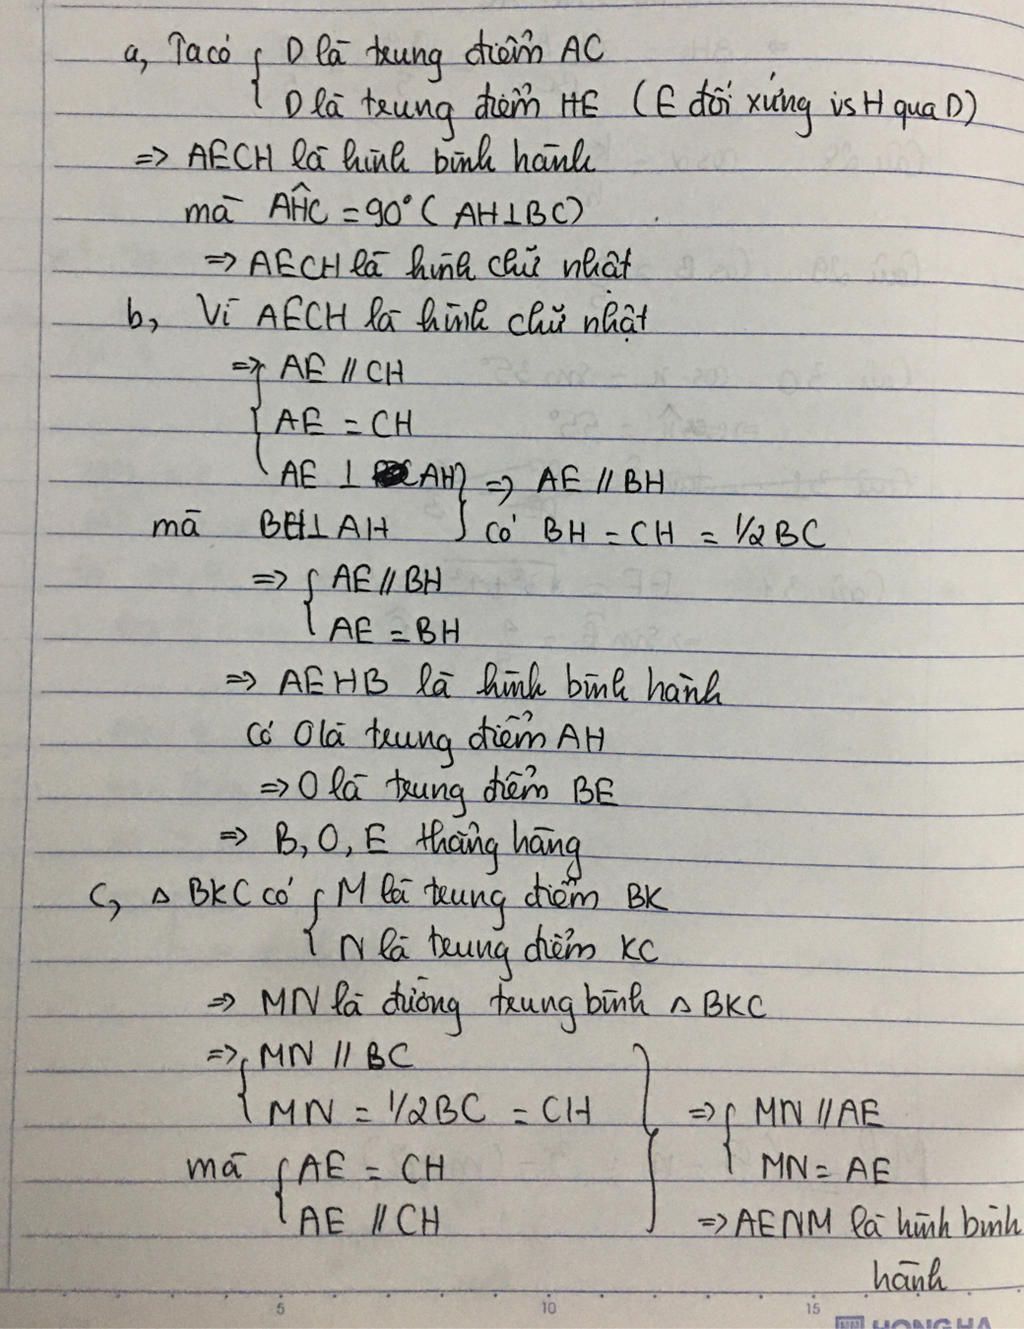 a, Ta có { D là trung điểm AC
D là trung điểm HE ( E đối xứng vs H qua D)
=> AECH là hình bình hành
mà AĤC = 90° ( AH⊥BC)
=> AECH là hình chữ nhật
b, Vì AECH là hình chữ nhật
=> { AE // CH
AE = CH
AE ⊥ AH } => AE // BH
mà BH⊥AH } có BH = CH = 1/2 BC
=> { AE // BH
AE = BH
=> AEHB là hình bình hành
có O là trung điểm AH
=> O là trung điểm BE
=> B, O, E thẳng hàng
c, △ BKC có { M là trung điểm BK
N là trung điểm KC
=> MN là đường trung bình △ BKC
=> { MN // BC
MN = 1/2BC = CH } => { MN // AE
mà { AE = CH MN = AE
AE // CH => AENM là hình bình
hành
5 10 15
HONG HA